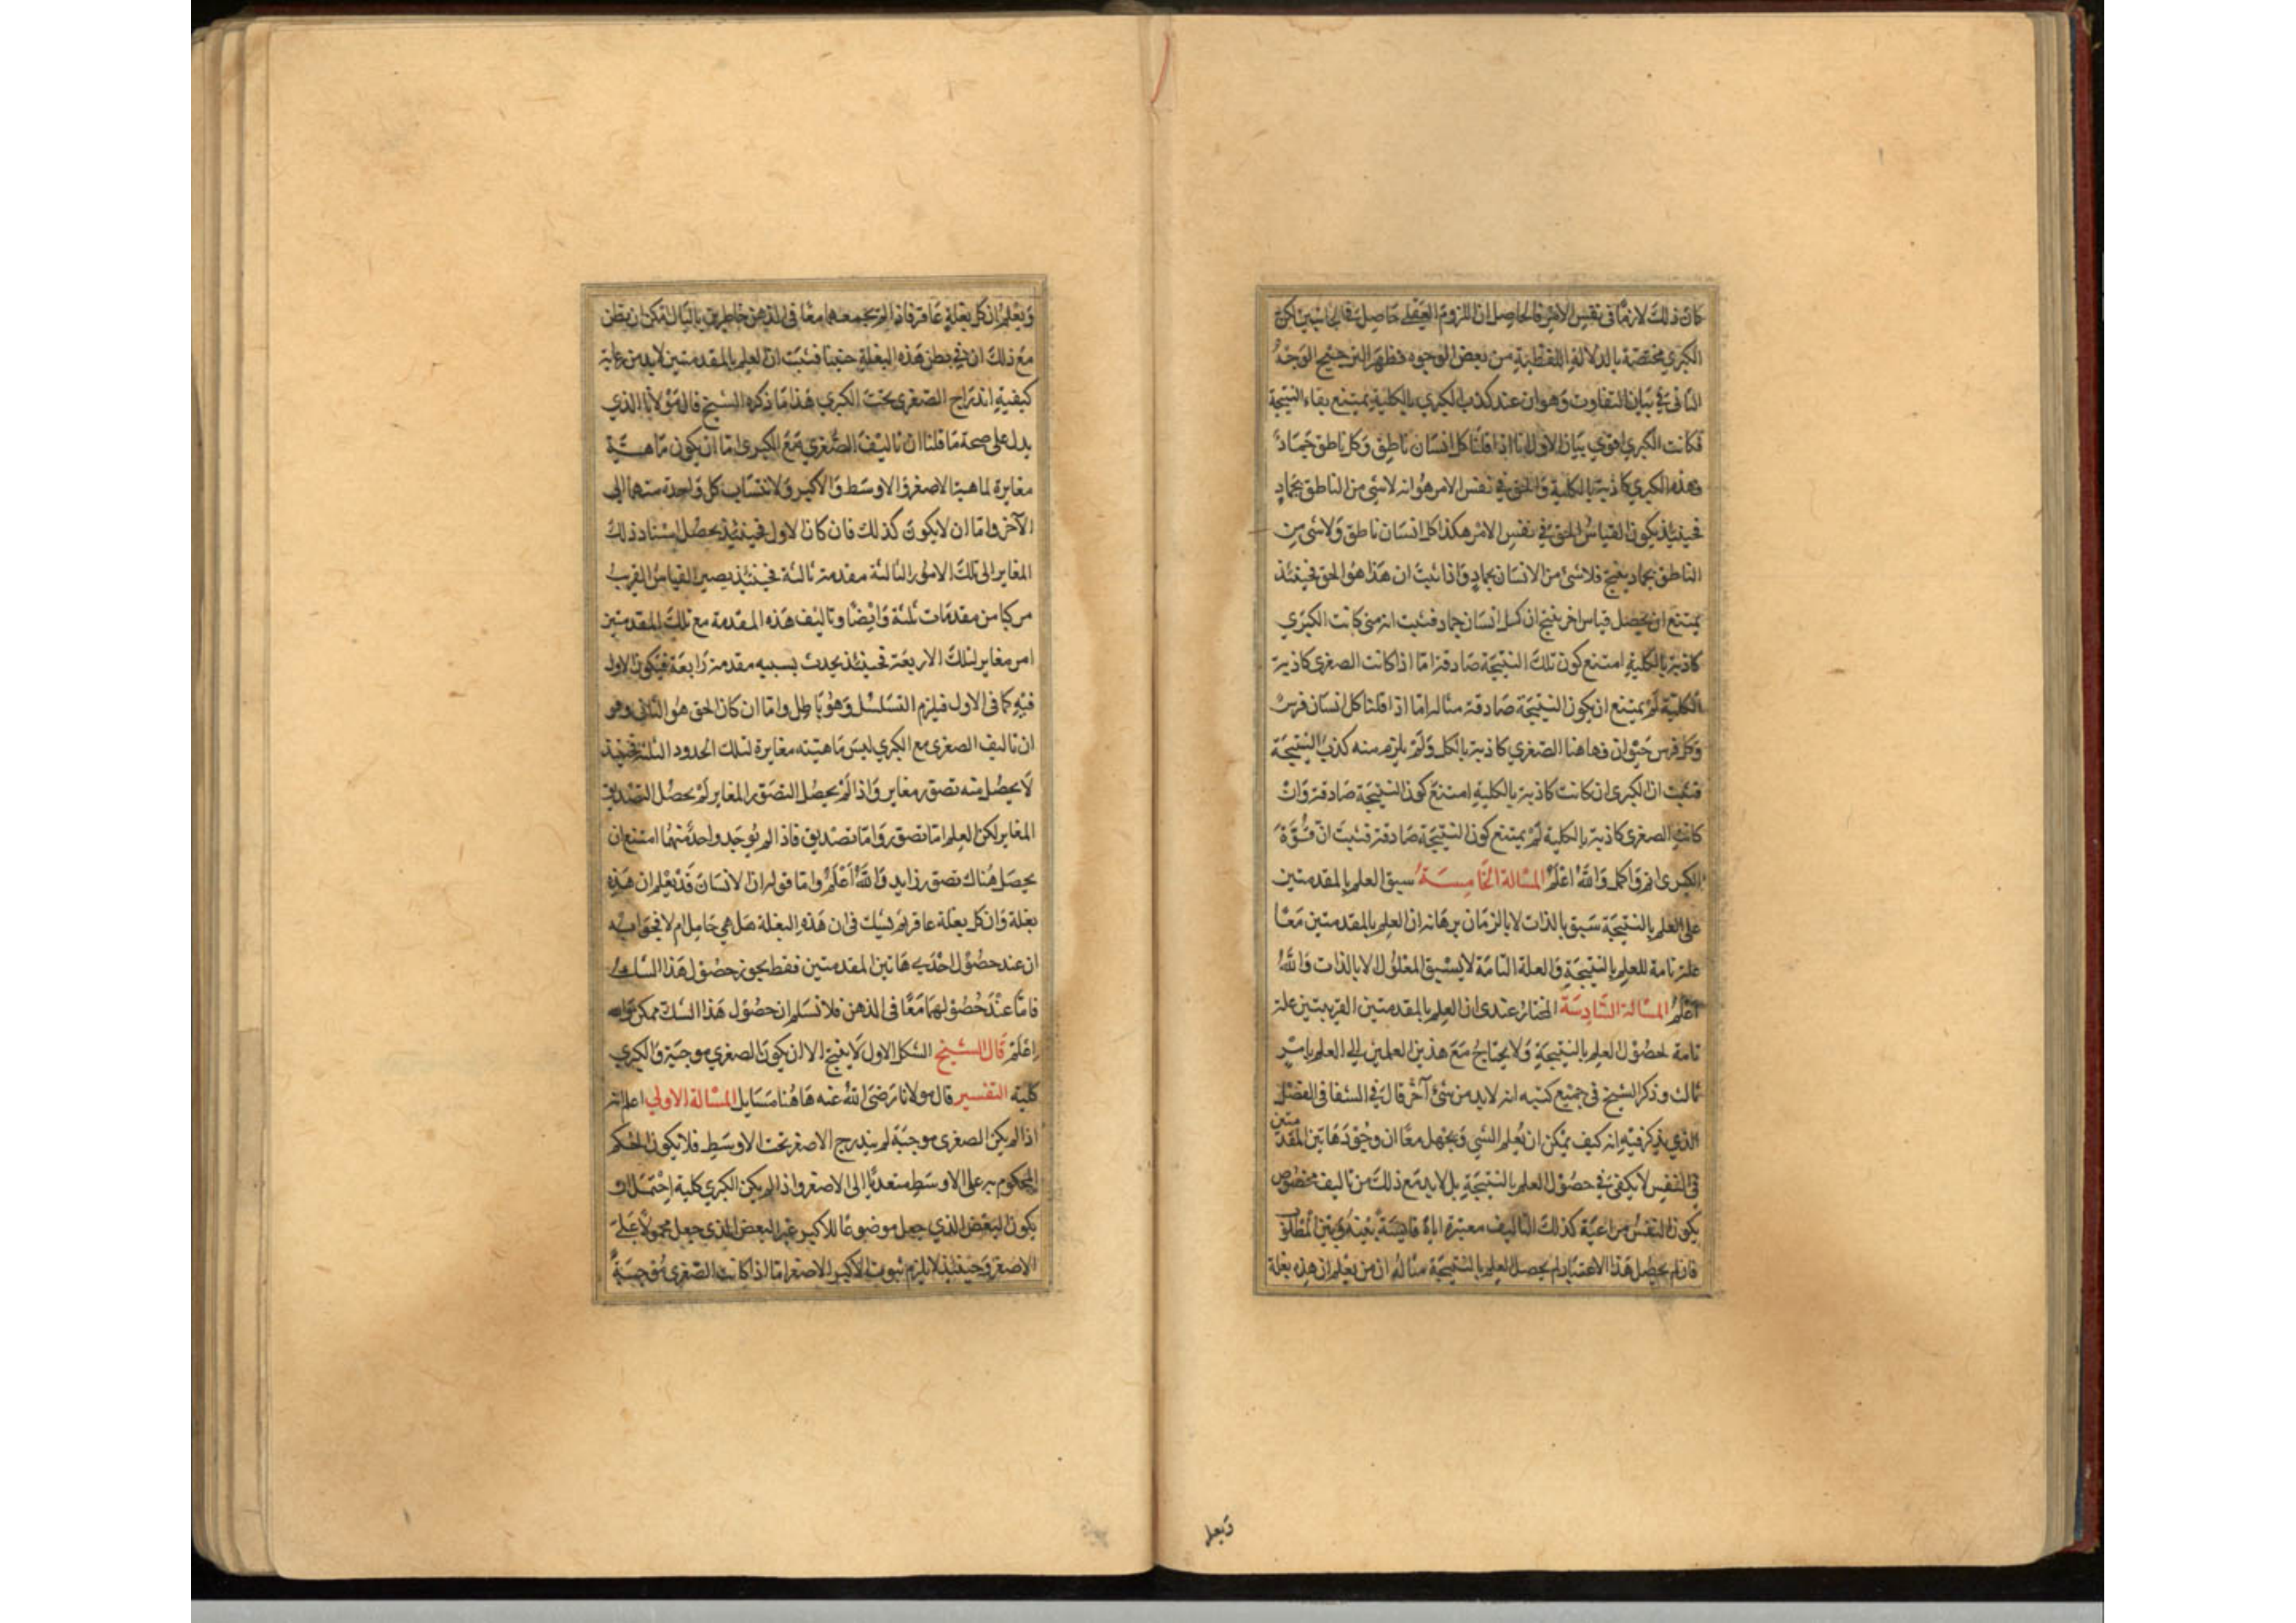 كان ذلك لازما في نفس الامر فالحاصل ان اللزوم العقلي حاصل
الكبرى مختصة بالدلالة اللفظية من بعض الوجوه فظهر الترجيح الوجه
الثاني في بيان التفاوت وهو ان عند كذب الكبرى بالكلية يمتنع بقاء النتيجة
فكانت الكبرى اقوى بيان الاول انا اذا قلنا كل انسان ناطق وكل ناطق جماد
وهذه الكبرى كاذبة بالكلية والحق في نفس الامر هو انه لا شي من الناطق بجماد
فحينئذ يكون القياس الحق في نفس الامر هكذا كل انسان ناطق ولا شي من
الناطق بجماد ينتج فلا شئ من الانسان بجماد واذا ثبت ان هذا هو الحق فحينئذ
يمتنع ان يحصل قياس اخر ينتج ان كل انسان جماد فثبت انه متى كانت الكبرى
كاذبة بالكلية امتنع كون تلك النتيجة صادقة اما اذا كانت الصغرى كاذبة
بالكلية لم يمتنع ان يكون النتيجة صادقة مثاله اما اذا قلنا كل انسان فرس
وكل فرس حيوان فهاهنا الصغرى كاذبة بالكل ولم يلزم منه كذب النتيجة
فثبت ان الكبرى ان كانت كاذبة بالكلية امتنع كون النتيجة صادقة وان
كانت الصغرى كاذبة بالكلية لم يمتنع كون النتيجة صادقة فثبت ان قوة
الكبرى اتم واكمل والله اعلم المسالة الخامسة سبق العلم بالمقدمتين
على العلم بالنتيجة سبق بالذات لا بالزمان برهانه ان العلم بالمقدمتين معا
علة تامة للعلم بالنتيجة والعلة التامة لا يسبق المعلول الا بالذات والله
اعلم المسالة السادسة المختار عندى ان العلم بالمقدمتين القريبتين علة
تامة لحصول العلم بالنتيجة ولا يحتاج مع هذين العلمين الى العلم بامر
ثالث وذكر الشيخ في جميع كتبه انه لا بد من شئ آخر قال في الشفا في الفصل
الذي يذكر فيه انه كيف يمكن ان يعلم الشي ويجهل معا ان وجود هاتين المقدمتين
في النفس لا يكفى في حصول العلم بالنتيجة بل لا بد مع ذلك من تاليف مخصوص
يكون النفس مراعية كذلك التاليف معتبرة اياه بينه وبين المطلوب
فان لم يحصل هذا الاعتبار لم يحصل العلم بالنتيجة مثاله ان من يعلم ان هذه بغلة
ويعلم
ويعلم ان كل بغلة عاقر فاذا لم تجمعهما معا في الذهن خاطرين بالبال امكن ان يظن
مع ذلك ان في بطن هذه البغلة جنينا فثبت ان العلم بالمقدمتين لا بد من رعاية
كيفية اندراج الصغرى تحت الكبرى هذا ما ذكره الشيخ قال مولانا الذي
يدل على صحة ما قلنا ان تاليف الصغرى مع الكبرى اما ان يكون ماهية
مغايرة لماهية الاصغر والاوسط والاكبر ولانتساب كل واحدة منهما الى
الآخر واما ان لا يكون كذلك فان كان الاول فحينئذ يحصل اسناد ذلك
المغاير الى تلك الامور الثالثة مقدمة ثالثة فحينئذ يصير القياس القريب
مركبا من مقدمات ثلثة وايضا وتاليف هذه المقدمة مع تلك المقدمتين
امر مغاير لتلك الاربعة فحينئذ يحدث بسببه مقدمة رابعة فيكون الاول
فيه كما في الاول فيلزم التسلسل وهو باطل واما ان كان الحق هو الثاني وهو
ان تاليف الصغرى مع الكبرى ليس ماهيته مغايرة لتلك الحدود الثلثة فحينئذ
لا يحصل منه تصور مغاير واذا لم يحصل التصور المغاير لم يحصل التصديق
المغاير لكن العلم اما تصور واما تصديق فاذا لم يوجد واحد منهما امتنع ان
يحصل هناك تصور زايد والله اعلم واما قوله ان الانسان قد يعلم ان هذه
بغلة وان كل بغلة عاقر ثم يشك في ان هذه البغلة هل هي حامل ام لا فجوابه
ان عند حصول احدى هاتين المقدمتين فقط يجوز حصول هذا الشك
فاما عند حصولهما معا في الذهن فلا نسلم ان حصول هذا الشك ممكن والله
اعلم قال الشيخ الشكل الاول لا ينتج الا ان يكون الصغرى موجبة والكبرى
كلية التفسير قال مولانا رضى الله عنه هاهنا مسايل المسالة الاولى اعلم انه
اذا لم يكن الصغرى موجبة لم يندرج الاصغر تحت الاوسط فلا يكون الحكم
المحكوم به على الاوسط متعديا الى الاصغر واذا لم يكن الكبرى كلية احتمل ان
يكون البعض الذي جعل موضوعا للاكبر غير البعض الذي جعل محمولا على
الاصغر وحينئذ لا يلزم ثبوت الاكبر للاصغر اما اذا كانت الصغرى موجبة